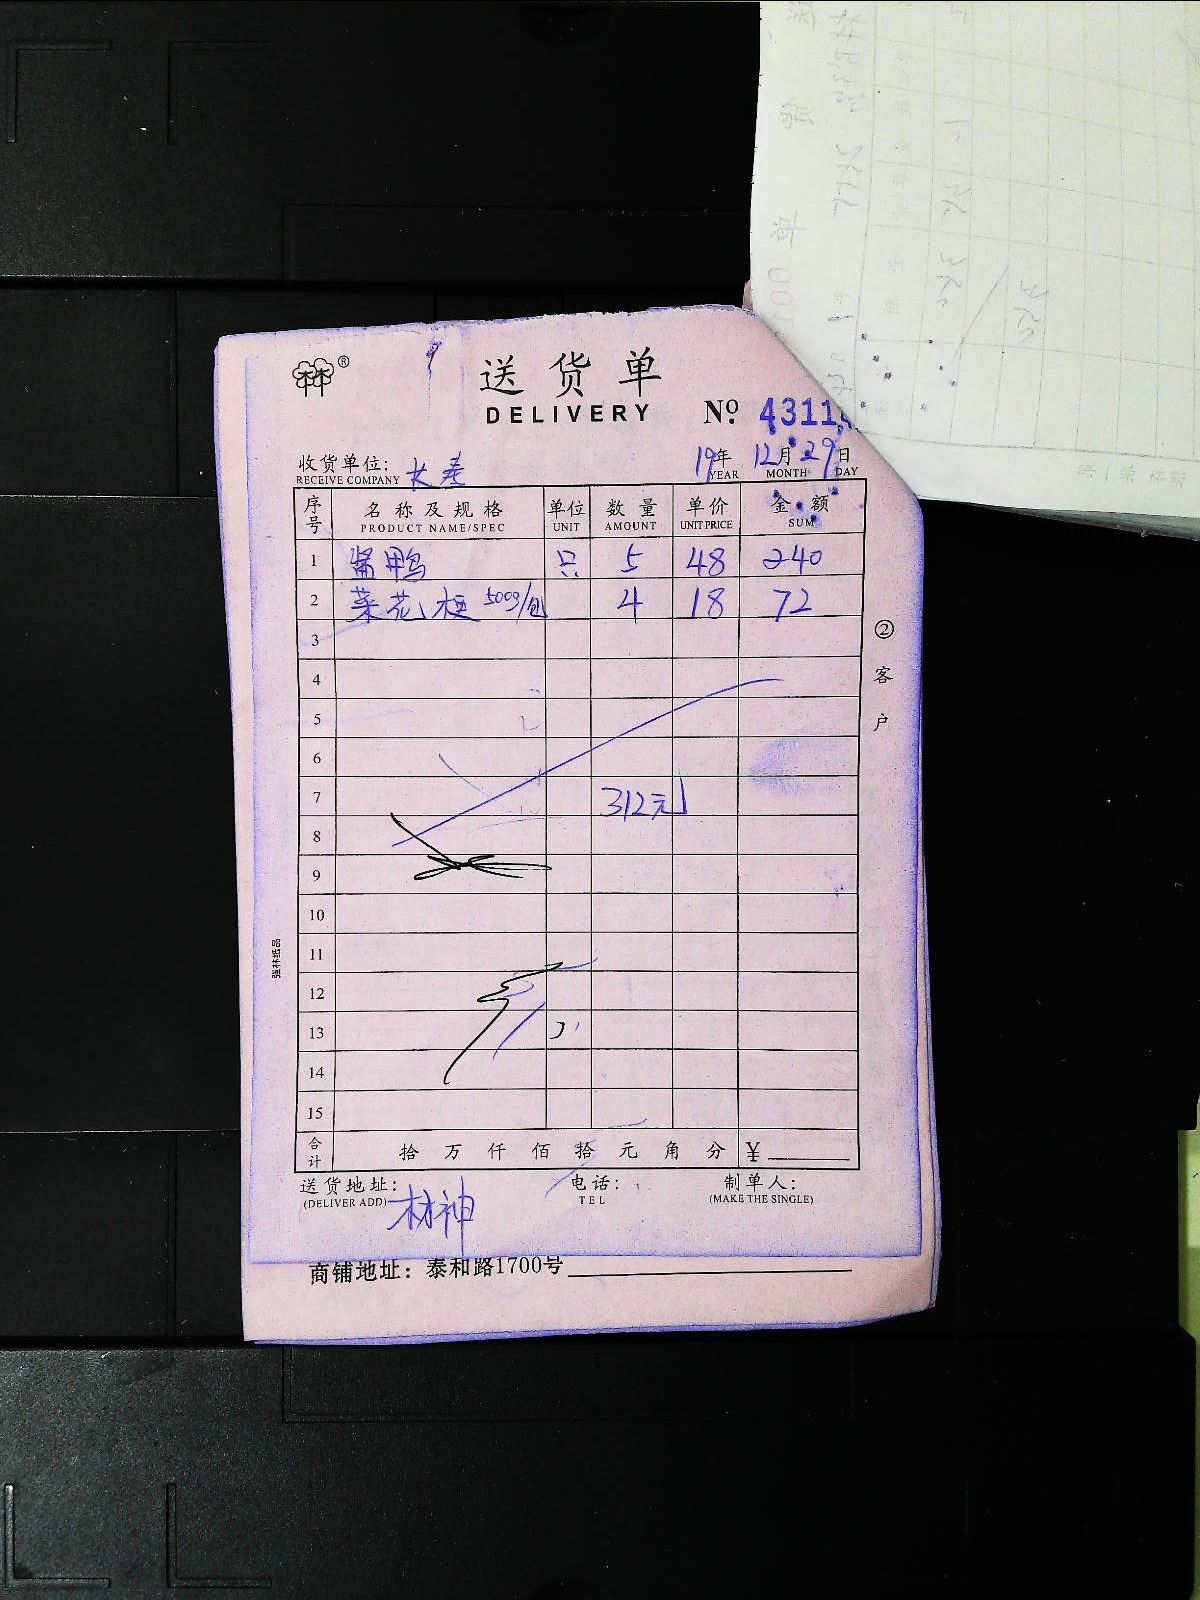 送货单
DELIVERY
№ 4311
收货单位: 长寿 19年 12月 29日
RECEIVE COMPANY YEAR MONTH DAY
序号 名称及规格 单位 数量 单价 金额
PRODUCT NAME/SPEC UNIT AMOUNT UNIT PRICE SUM
1 酱鸭 只 5 48 240
2 菜花梗 500g/包 4 18 72
3
4
5
6
7 312元
8
9
10
11
12
13
14
15
合计 拾 万 仟 佰 拾 元 角 分 ¥
送货地址: 林神 电话: 制单人:
(DELIVER ADD) TEL (MAKE THE SINGLE)
商铺地址: 泰和路1700号
②客户
强林纸品